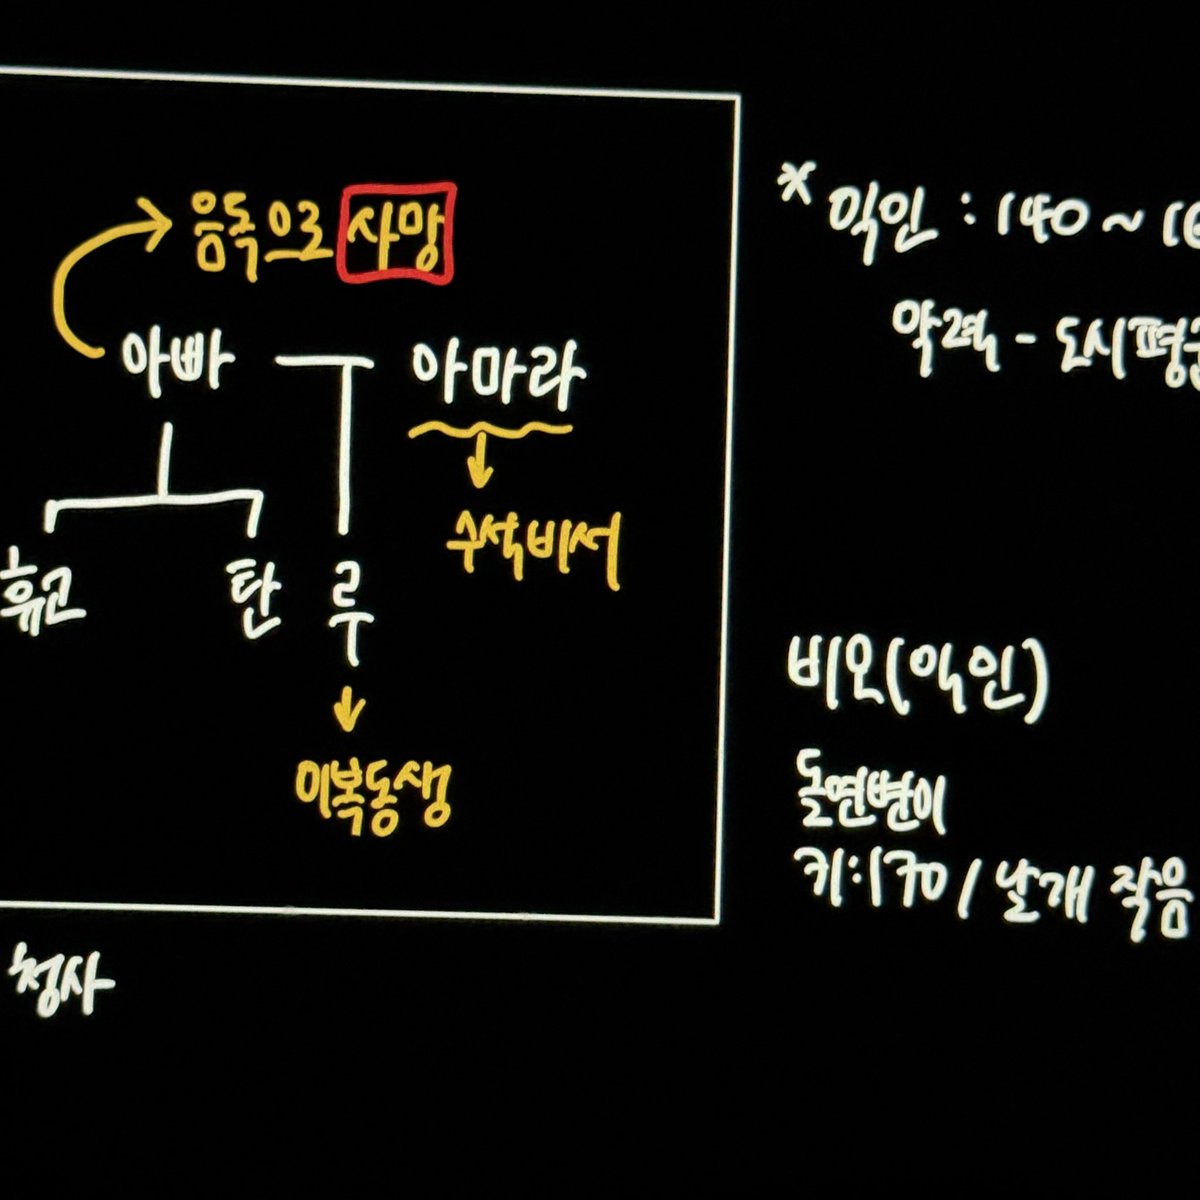 음독으로 사망
아빠 아마라
수석비서
휴고 탄 루
이복동생
청사
* 익인 : 140 ~
악력 - 도시평균
비오(익인)
돌연변이
키:170 / 날개 작음